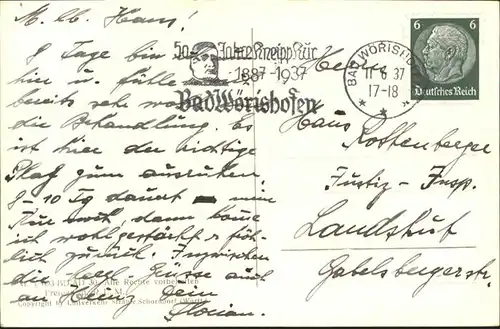 M. lb. Hans!
8 Tage bin
hin u. fühle
bereits sehr wo
die Behandlung. Es
ist hier der richtige
Platz zum ausruhen
8-10 Tg dauert mein
Kur noch, dann komme
ich wohlgestärkt u. fröh
lich zurück. Inzwischen
die Grüsse auch
an Heinz Dein
Florian.
Alle Rechte vorbehalten
Copyright by
50 Jahre Kneipp Kur
1887-1937
Bad Wörishofen
BAD WÖRISHO
11 6 37
17-18
6 6
Deutsches Reich
Herrn
Hans
Rottenberger
Justiz-Insp.
Landshut
Gabelsbergerstr.